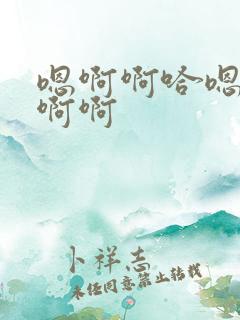 嗯啊啊哈嗯
啊啊
卜祥志
未经同意禁止转载